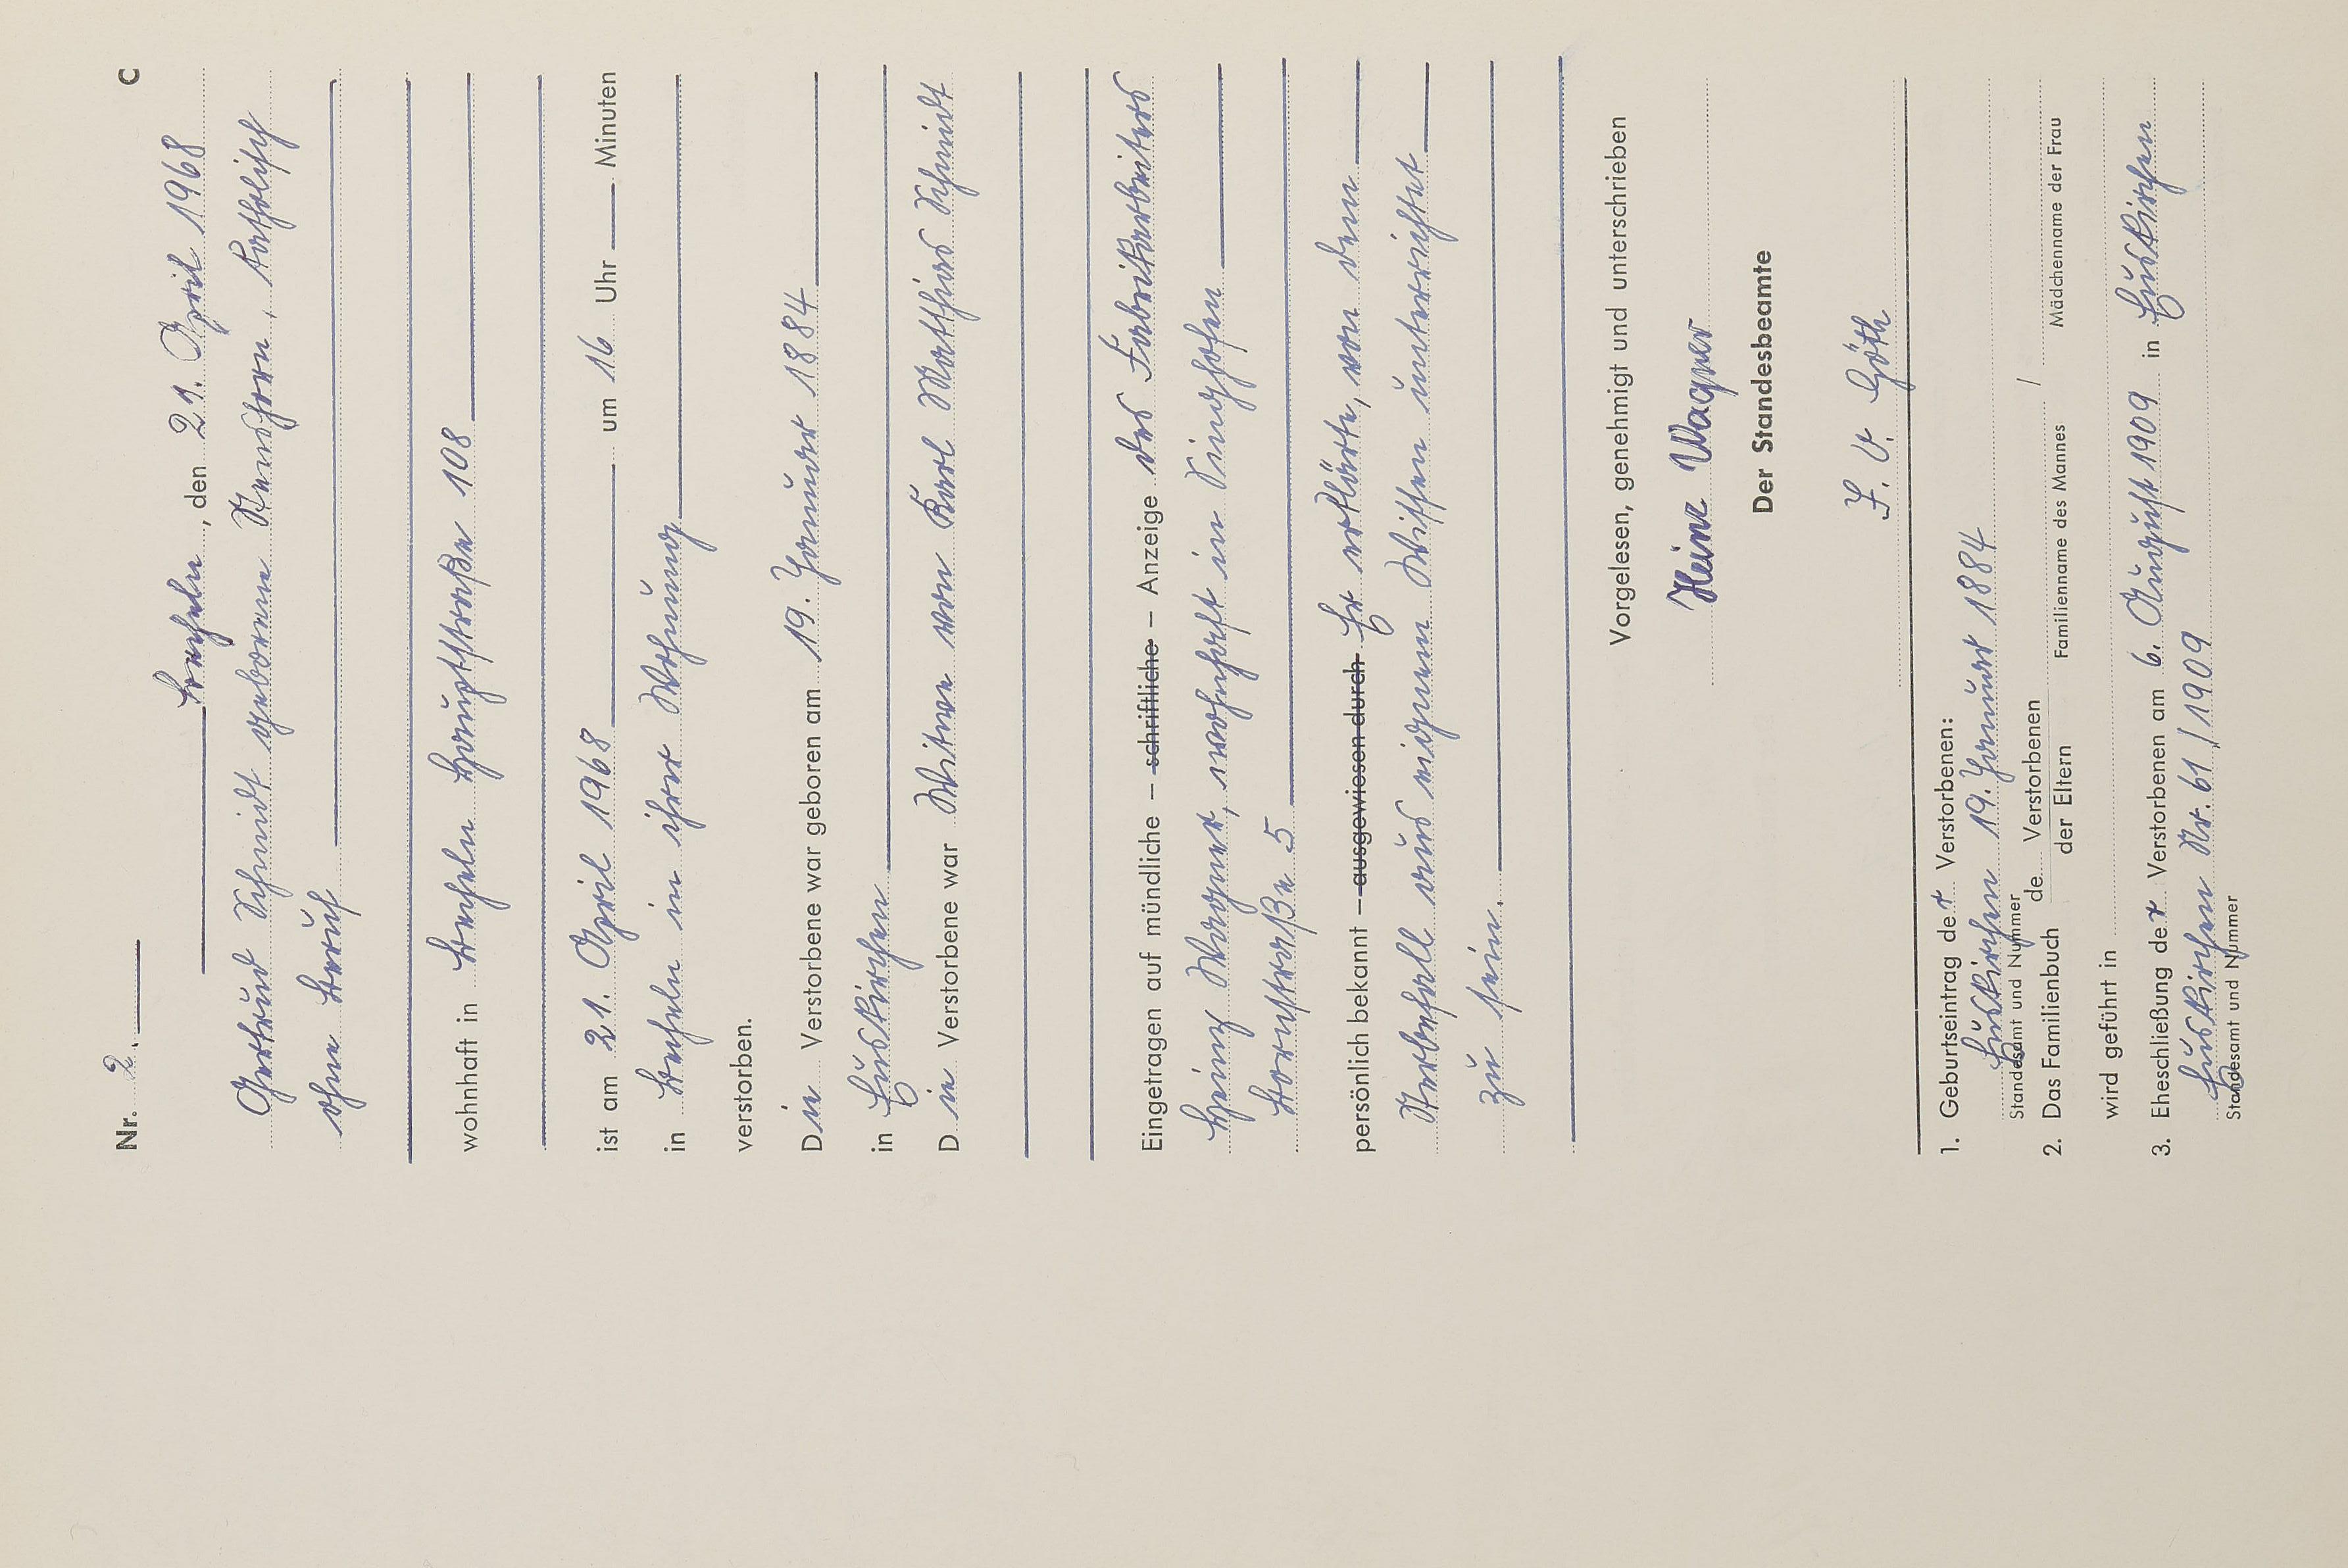 Nr. 2. C
Becheln, den 21. April 1968
Gertrud Schmidt geborene Stenshorn, katholisch
ohne Beruf
wohnhaft in Becheln Hauptstraße 108
ist am 21. April 1968 um 16 Uhr — Minuten
in Becheln in ihrer Wohnung
verstorben.
Die Verstorbene war geboren am 19. Januar 1884
in Euskirchen
Die Verstorbene war Witwe von Karl Matthias Schmidt
Eingetragen auf mündliche – schriftliche – Anzeige des Fabrikarbeiters
Heinz Wagner, wohnhaft in Singhofen
Bornstraße 5
persönlich bekannt – ausgewiesen durch Er erklärte, von dem
Sterbefall aus eigenem Wissen unterrichtet
zu sein.
Vorgelesen, genehmigt und unterschrieben
Heinz Wagner
Der Standesbeamte
I. V. Göth
1. Geburtseintrag der Verstorbenen:
Euskirchen 19. Januar 1884
Standesamt und Nummer
2. Das Familienbuch de Verstorbenen /
der Eltern Familienname des Mannes Mädchenname der Frau
wird geführt in
3. Eheschließung der Verstorbenen am 6. August 1909 in Euskirchen
Euskirchen Nr. 61/1909
Standesamt und Nummer